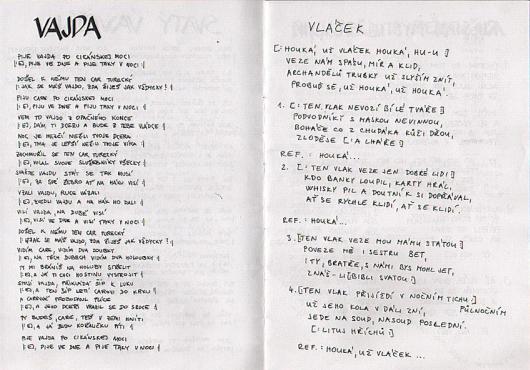 VAJDA
PIJE VAJDA PO CIKÁNSKEJ MOCI
|: EJ, PIJE VE DNE A PIJE TAKY V NOCI :|
DOŠEL K NĚMU TEN CAR TURECKÝ
|: JAK SE MÁŠ VAJDO, ZDA ŽIJEŠ JAK VŽDYCKY! :|
PIJU CARE PO CIKÁNSKEJ MOCI
|: EJ, PIJU VE DNE A PIJU TAKY V NOCI :|
VEM TO VAJDO Z OPAČNÉHO KONCE
|: EJ, DÁM TI DCERU A BUDE Z TEBE VLÁDCE :|
NOC JE MENŠÍ NEŽLI TVOJE DCERA
|: EJ, TMA JE LEPŠÍ NEŽLI TVOJE VÍRA :|
ZACHMUŘIL SE TEN CAR TURECKÝ
|: EJ, VOLAL SVOJE SLUŽEBNÍKY VŠECKY :|
SVAŽTE VAJDU STÁT SE TAK MUSÍ
|: EJ, ZA SVÉ ŽEBRO AŤ NA HÁKU VISÍ :|
VZALI VAJDU, RUCE VÁZALI
|: EJ, ZVEDLI VAJDU A NA HÁK HO DALI :|
VISÍ VAJDA, NA DUBĚ VISÍ
|: EJ, VISÍ VE DNE A VISÍ TAKY V NOCI :|
DOŠEL K NĚMU TEN CAR TURECKÝ
|: JAK SE MÁŠ VAJDO, ZDA ŽIJEŠ JAK VŽDYCKY! :|
VIDÍM CARE, VIDÍM DVA DOUBKY
|: EJ, NA TĚCH DUBECH VIDÍM DVA HOLOUBKY :|
TY MI BRÁNIŠ NA HOLUBY STŘELIT
|: EJ, A JÁ TI CHCI HOSTINU VYSTROJIT :|
STOJÍ VAJDA, PŘIKLÁDÁ ŠÍP K LUKU
|: EJ, A TEN ŠÍP LETÍ CAROVI DO KRKU :|
A CAROVI PROBODNUL PLÍCE
|: EJ, A JEHO DCEŘI VRAZIL SE DO SRDCE :|
TY BUDEŠ CARE, TEĎ V ZEMI HNÍTI
|: EJ, A JÁ BUDU KOŘALIČKU PÍTI :|
PIJE VAJDA PO CIKÁNSKEJ MOCI
|: EJ, PIJE VE DNE A PIJE TAKY V NOCI :|
VLÁČEK
[: HOUKÁ, UŽ VLÁČEK HOUKÁ, HU-U :]
VEZE NÁM SPÁSU, MÍR A KLID,
ARCHANDĚLŮ TRUBKY UŽ SLYŠÍM ZNÍT,
PROBUĎ SE, UŽ HOUKÁ, UŽ HOUKÁ.
1. [: TEN VLAK NEVOZÍ BÍLÉ TVÁŘE :]
PODVODNÍKY S MASKOU NEVINNOU,
BOHÁČE CO Z CHUĎÁKA KŮŽI DŘOU,
ZLODĚJE [: A LHÁŘE :]
REF.: HOUKÁ...
2. [: TEN VLAK VEZE JEN DOBRÉ LIDI :]
KDO BANKY LOUPIL, KARTY HRÁL,
WHISKY PIL A DOUTNÍK SI DOPŘÁVAL,
AŤ SE RYCHLE KLIDÍ, AŤ SE KLIDÍ.
REF.: HOUKÁ...
3. [: TEN VLAK VEZE MOU MÁMU STAROU :]
POVEZE MĚ I SESTRU BET,
I TY, BRATŘE, S NÁMI BYS MOHL JET,
ZNÁŠ-LI [: BIBLI SVATOU :]
4. [: TEN VLAK PŘIJÍŽDÍ V NOČNÍM TICHU :]
UŽ JEHO KOLA V DÁLI ZNÍ, PŮLNOČNÍM
JEDE NA SOUD, NA SOUD POSLEDNÍ.
[: LITUJ HŘÍCHŮ :]
REF.: HOUKÁ, UŽ VLÁČEK...